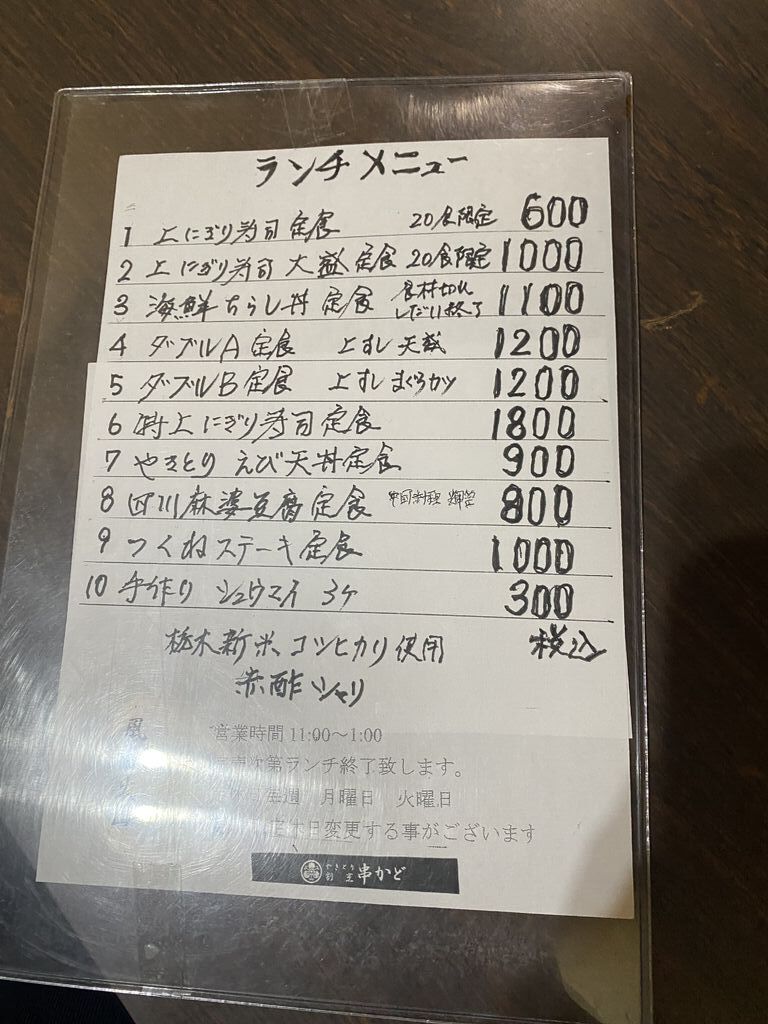 ランチメニュー
1 上にぎり寿司定食 20食限定 600
2 上にぎり寿司 大盛定食 20食限定 1000
3 海鮮ちらし丼定食 食材切れ しだい終了 1100
4 ダブルA定食 上すし 天盛 1200
5 ダブルB定食 上すし まぐろカツ 1200
6 特上にぎり寿司定食 1800
7 やきとり えび天丼定食 900
8 四川麻婆豆腐定食 中国料理 800
9 つくねステーキ定食 1000
10 手作り シュウマイ 3ケ 300
栃木新米、コシヒカリ使用 税込
赤酢シャリ
営業時間 11:00～1:00
次第ランチ終了致します。
毎週 月曜日 火曜日
日変更する事がございます
やきとり 割烹 串かど